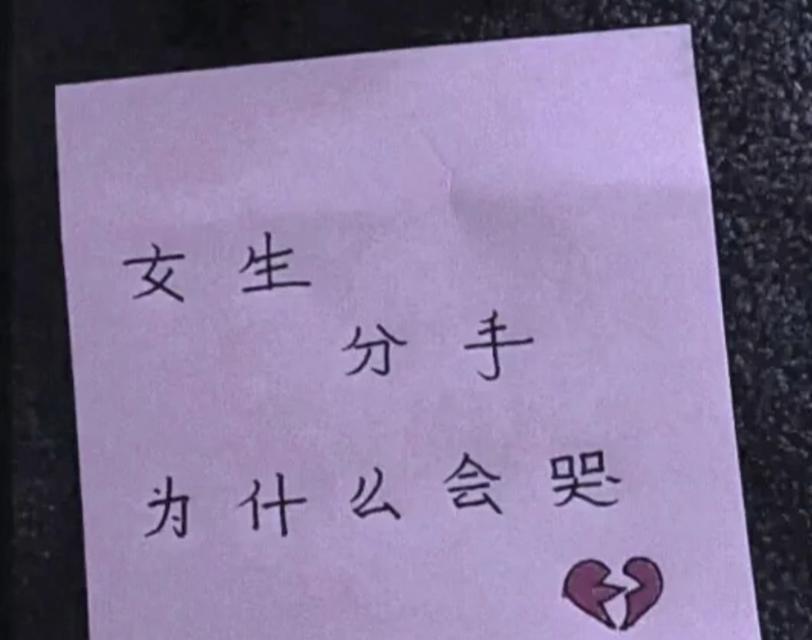 女生
分手
为什么会哭